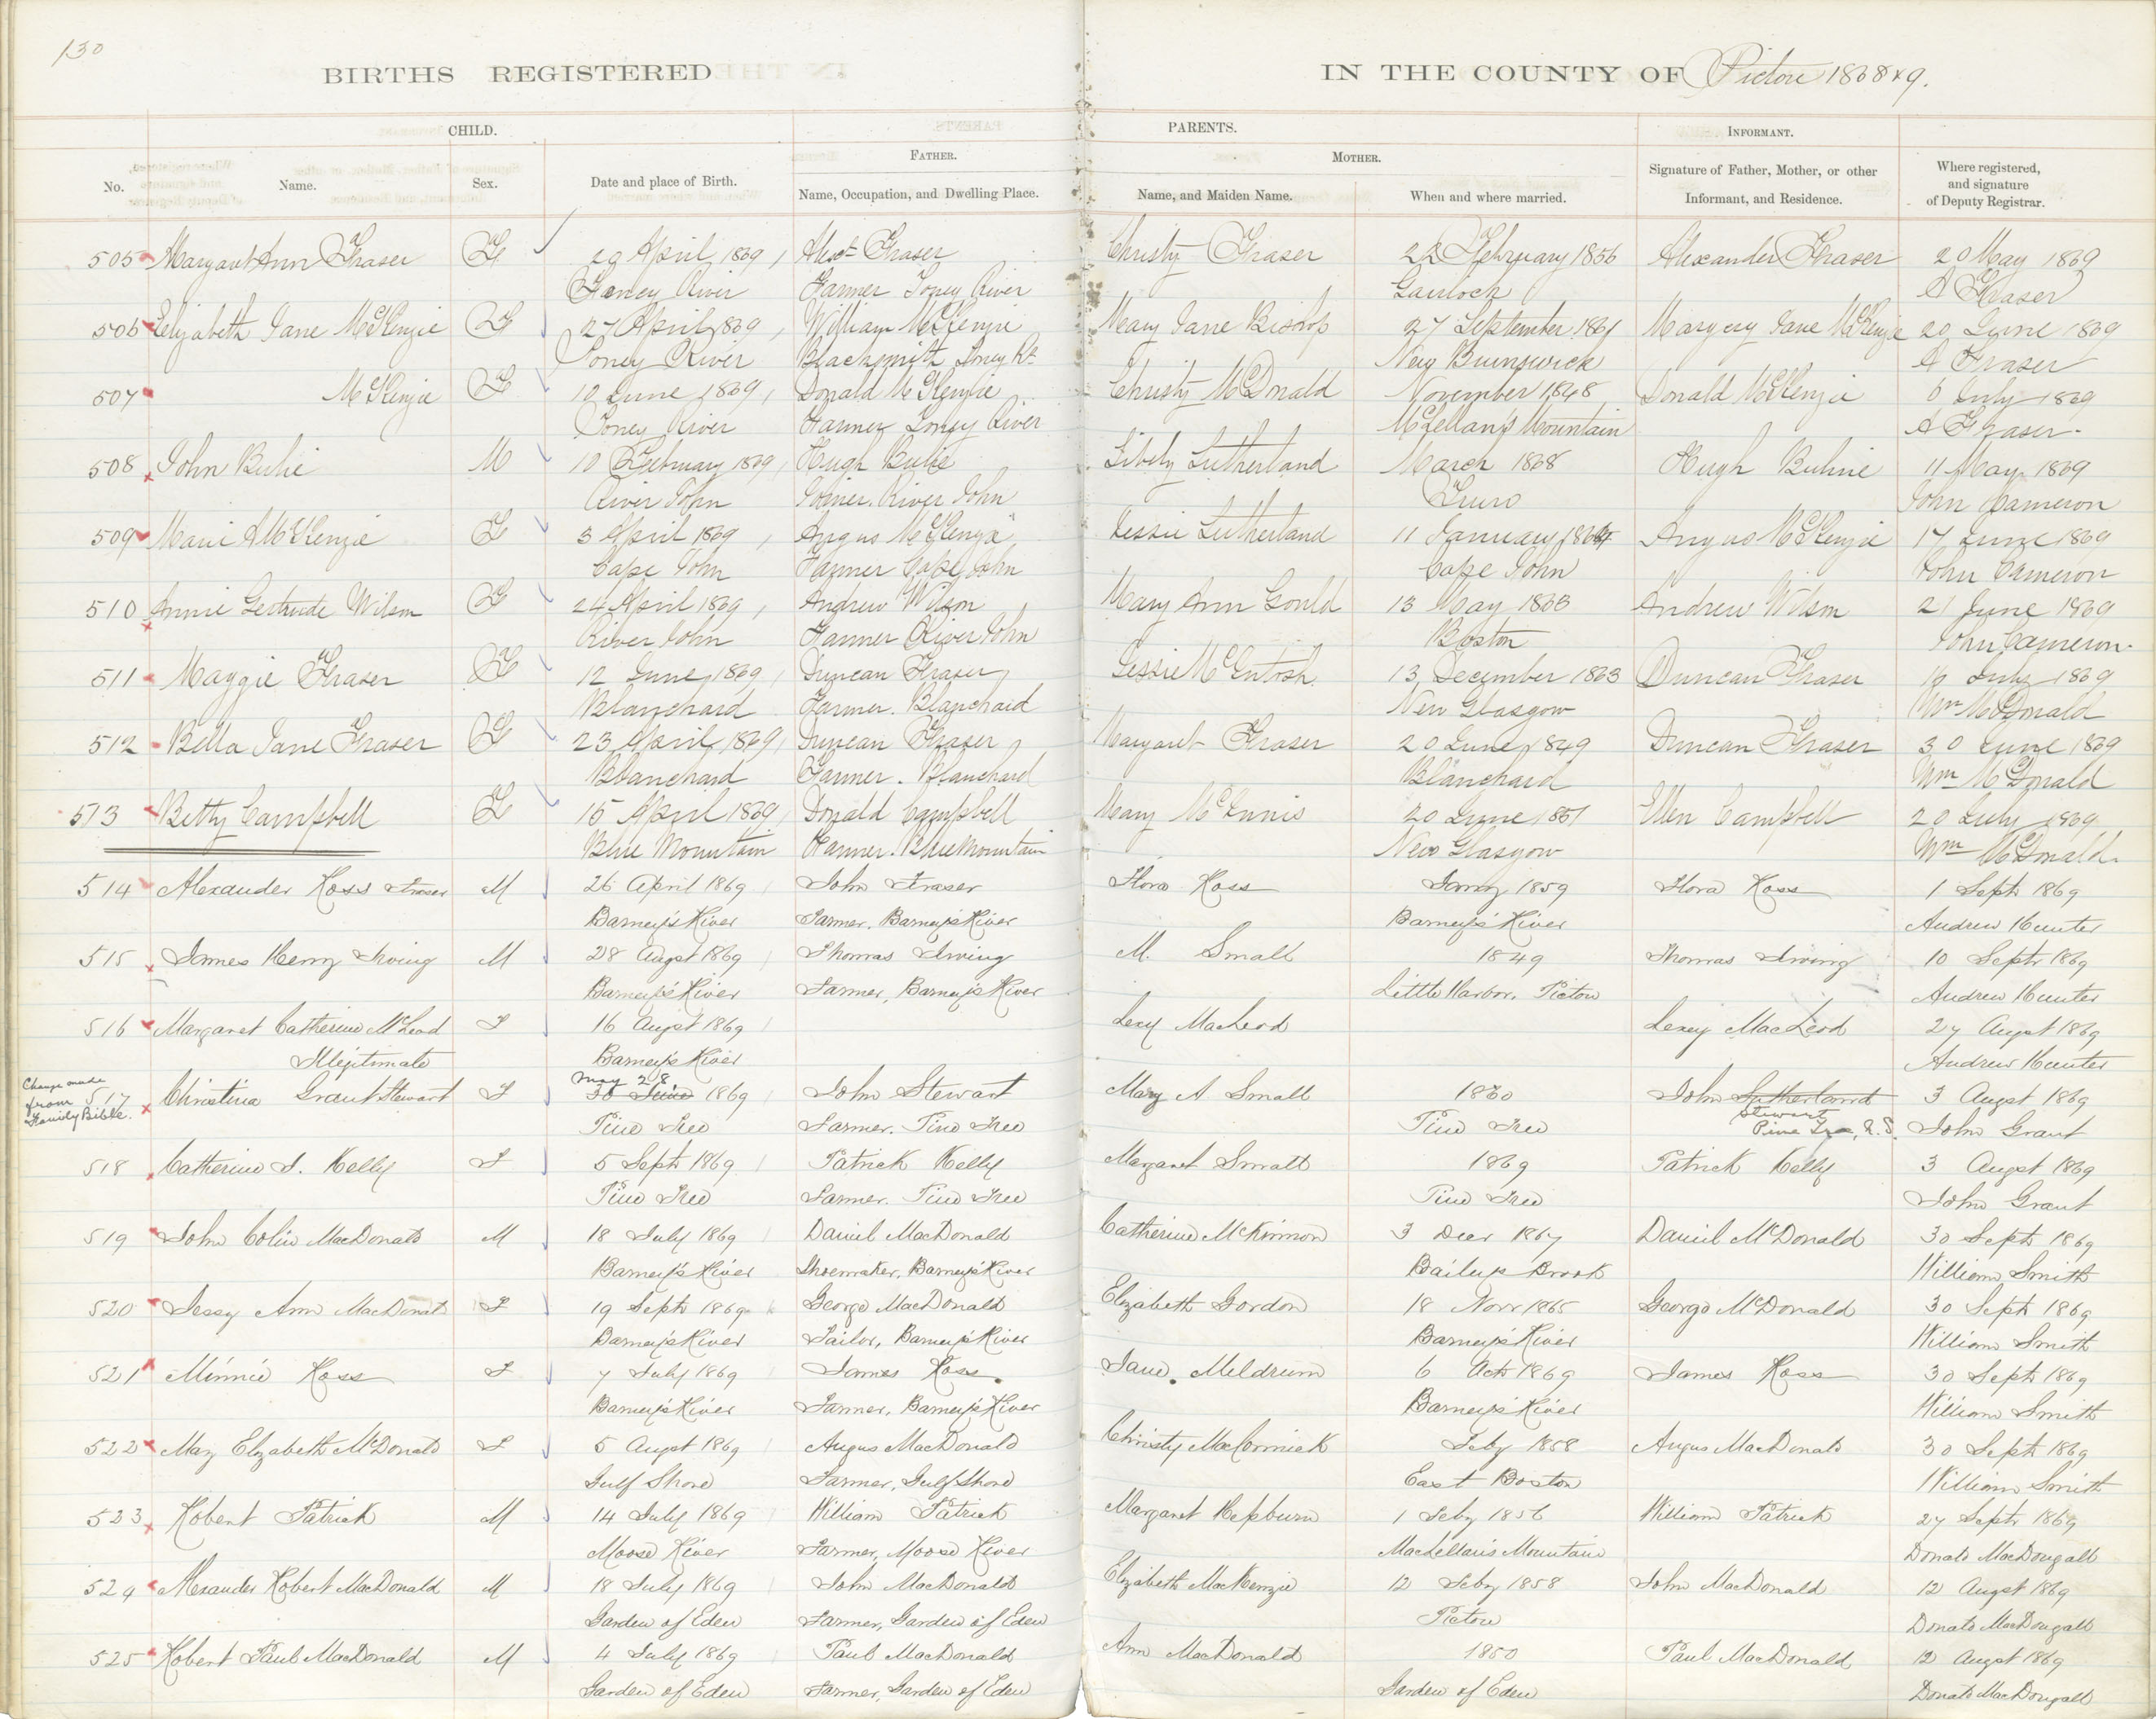 130
BIRTHS REGISTERED IN THE COUNTY OF Pictou 1868 & 9.
CHILD. PARENTS. INFORMANT.
FATHER. MOTHER.
No. Name. Sex. Date and place of Birth. Name, Occupation, and Dwelling Place. Name, and Maiden Name. When and where married. Signature of Father, Mother, or other Informant, and Residence. Where registered, and signature of Deputy Registrar.
505 Margaret Ann Fraser F 29 April 1869 Alexr Fraser Christy Fraser 22 February 1856 Alexander Fraser 20 May 1869
Toney River Farmer Toney River Gairloch A Fraser
506 Elizabeth Jane McKenzie F 27 April 1869 William McKenzie Mary Jane Bishop 27 September 1861 Margery Jane McKenzie 20 June 1869
Toney River Blacksmith Toney Rr New Brunswick A Fraser
507 McKenzie F 10 June 1869 Donald McKenzie Christy McDonald November 1848 Donald McKenzie 6 July 1869
Toney River Farmer Toney River McLellan's Mountain A Fraser.
508 John Buhie M 10 February 1869 Hugh Buhie Libely Sutherland March 1868 Hugh Buhnie 11 May 1869
River John Joiner. River John Truro John Cameron
509 Marie A McKenzie F 3 April 1869 Angus McKenzie Jessie Sutherland 11 January 1864 Angus McKenzie 17 June 1869
Cape John Farmer Cape John Cape John John Cameron
510 Annie Gertrude Wilson F 24 April 1869 Andrew Wilson Mary Ann Gould 13 May 1863 Andrew Wilson 21 June 1869
River John Farmer River John Boston John Cameron.
511 Maggie Fraser F 12 June 1869 Duncan Fraser Jessie McIntosh 13 December 1863 Duncan Fraser 19 July 1869
Blanchard Farmer. Blanchard New Glasgow Wm McDonald
512 Bella Jane Fraser F 23 April 1869 Duncan Fraser Margaret Fraser 20 June 1849 Duncan Fraser 30 June 1869
Blanchard Farmer. Blanchard Blanchard Wm McDonald
513 Betty Campbell F 15 April 1869 Donald Campbell Mary McInnis 20 June 1851 Ellen Campbell 20 July 1869
Blue Mountain Farmer. Blue Mountain New Glasgow Wm McDonald
514 Alexander Ross Fraser M 26 April 1869 John Fraser Flora Ross Jany 1859 Flora Ross 1 Septr 1869
Barney's River Farmer, Barney's River Barney's River Andrew Hunter
515 James Henry Irving M 28 Augst 1869 Thomas Irving M. Small 1849 Thomas Irving 10 Septr 1869
Barney's River Farmer, Barney's River Little Harbor, Pictou Andrew Hunter
516 Margaret Catherine McLeod F 16 Augst 1869 Lexy MacLeod Lexey MacLeod 27 Augst 1869
Illegitimate Barney's River Andrew Hunter
Change made from Family Bible. 517 Christina Grant Stewart F May 28 30 June 1869 John Stewart Mary A Small 1860 John Sutherland 3 Augst 1869
Pine Tree Farmer. Pine Tree Pine Tree Stewart Pine Tree, N.S. John Grant
518 Catherine J. Kelly F 5 Septr 1869 Patrick Kelly Margaret Small 1869 Patrick Kelly 3 Augst 1869
Pine Tree Farmer. Pine Tree Pine Tree John Grant
519 John Colin MacDonald M 18 July 1869 Daniel MacDonald Catherine McKinnon 3 Decr 1867 Daniel McDonald 30 Septr 1869
Barney's River Shoemaker, Barney's River Bailey's Brook William Smith
520 Jessy Ann MacDonald F 19 Septr 1869 George MacDonald Elizabeth Gordon 18 Novr 1865 George McDonald 30 Septr 1869
Barney's River Tailor, Barney's River Barney's River William Smith
521 Minnie Ross F 7 July 1869 James Ross. Jane. Meldrum 6 Octr 1869 James Ross 30 Septr 1869
Barney's River Farmer, Barney's River Barney's River William Smith
522 May Elizabeth McDonald F 5 Augst 1869 Angus MacDonald Christy MacCormick Feby 1858 Angus MacDonald 30 Septr 1869
Gulf Shore Farmer, Gulf Shore East Boston William Smith
523 Robert Patrick M 14 July 1869 William Patrick Margaret Hepburn 1 Feby 1856 William Patrick 27 Septr 1869
Moose River Farmer, Moose River MacLellan's Mountain Donald MacDougall
524 Alexander Robert MacDonald M 18 July 1869 John MacDonald Elizabeth MacKenzie 12 Feby 1858 John MacDonald 12 Augst 1869
Garden of Eden Farmer, Garden of Eden Pictou Donald MacDougall
525 Robert Paul MacDonald M 4 July 1869 Paul MacDonald Ann MacDonald 1850 Paul MacDonald 12 Augst 1869
Garden of Eden Farmer, Garden of Eden Garden of Eden Donald MacDougall